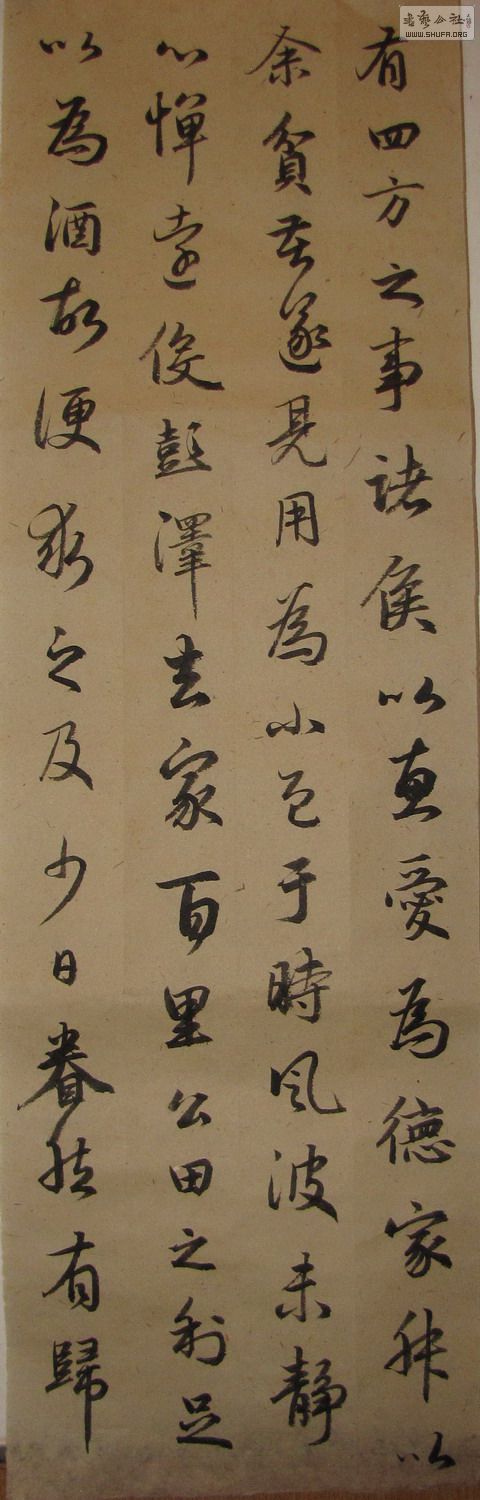 有四方之事諸侯以惠愛為德家叔以
余貧苦遂見用為小邑于時風波未靜
心憚遠役彭澤去家百里公田之利足
以為酒故便求之及少日眷然有歸
書藝公社
WWW.SHUFA.ORG